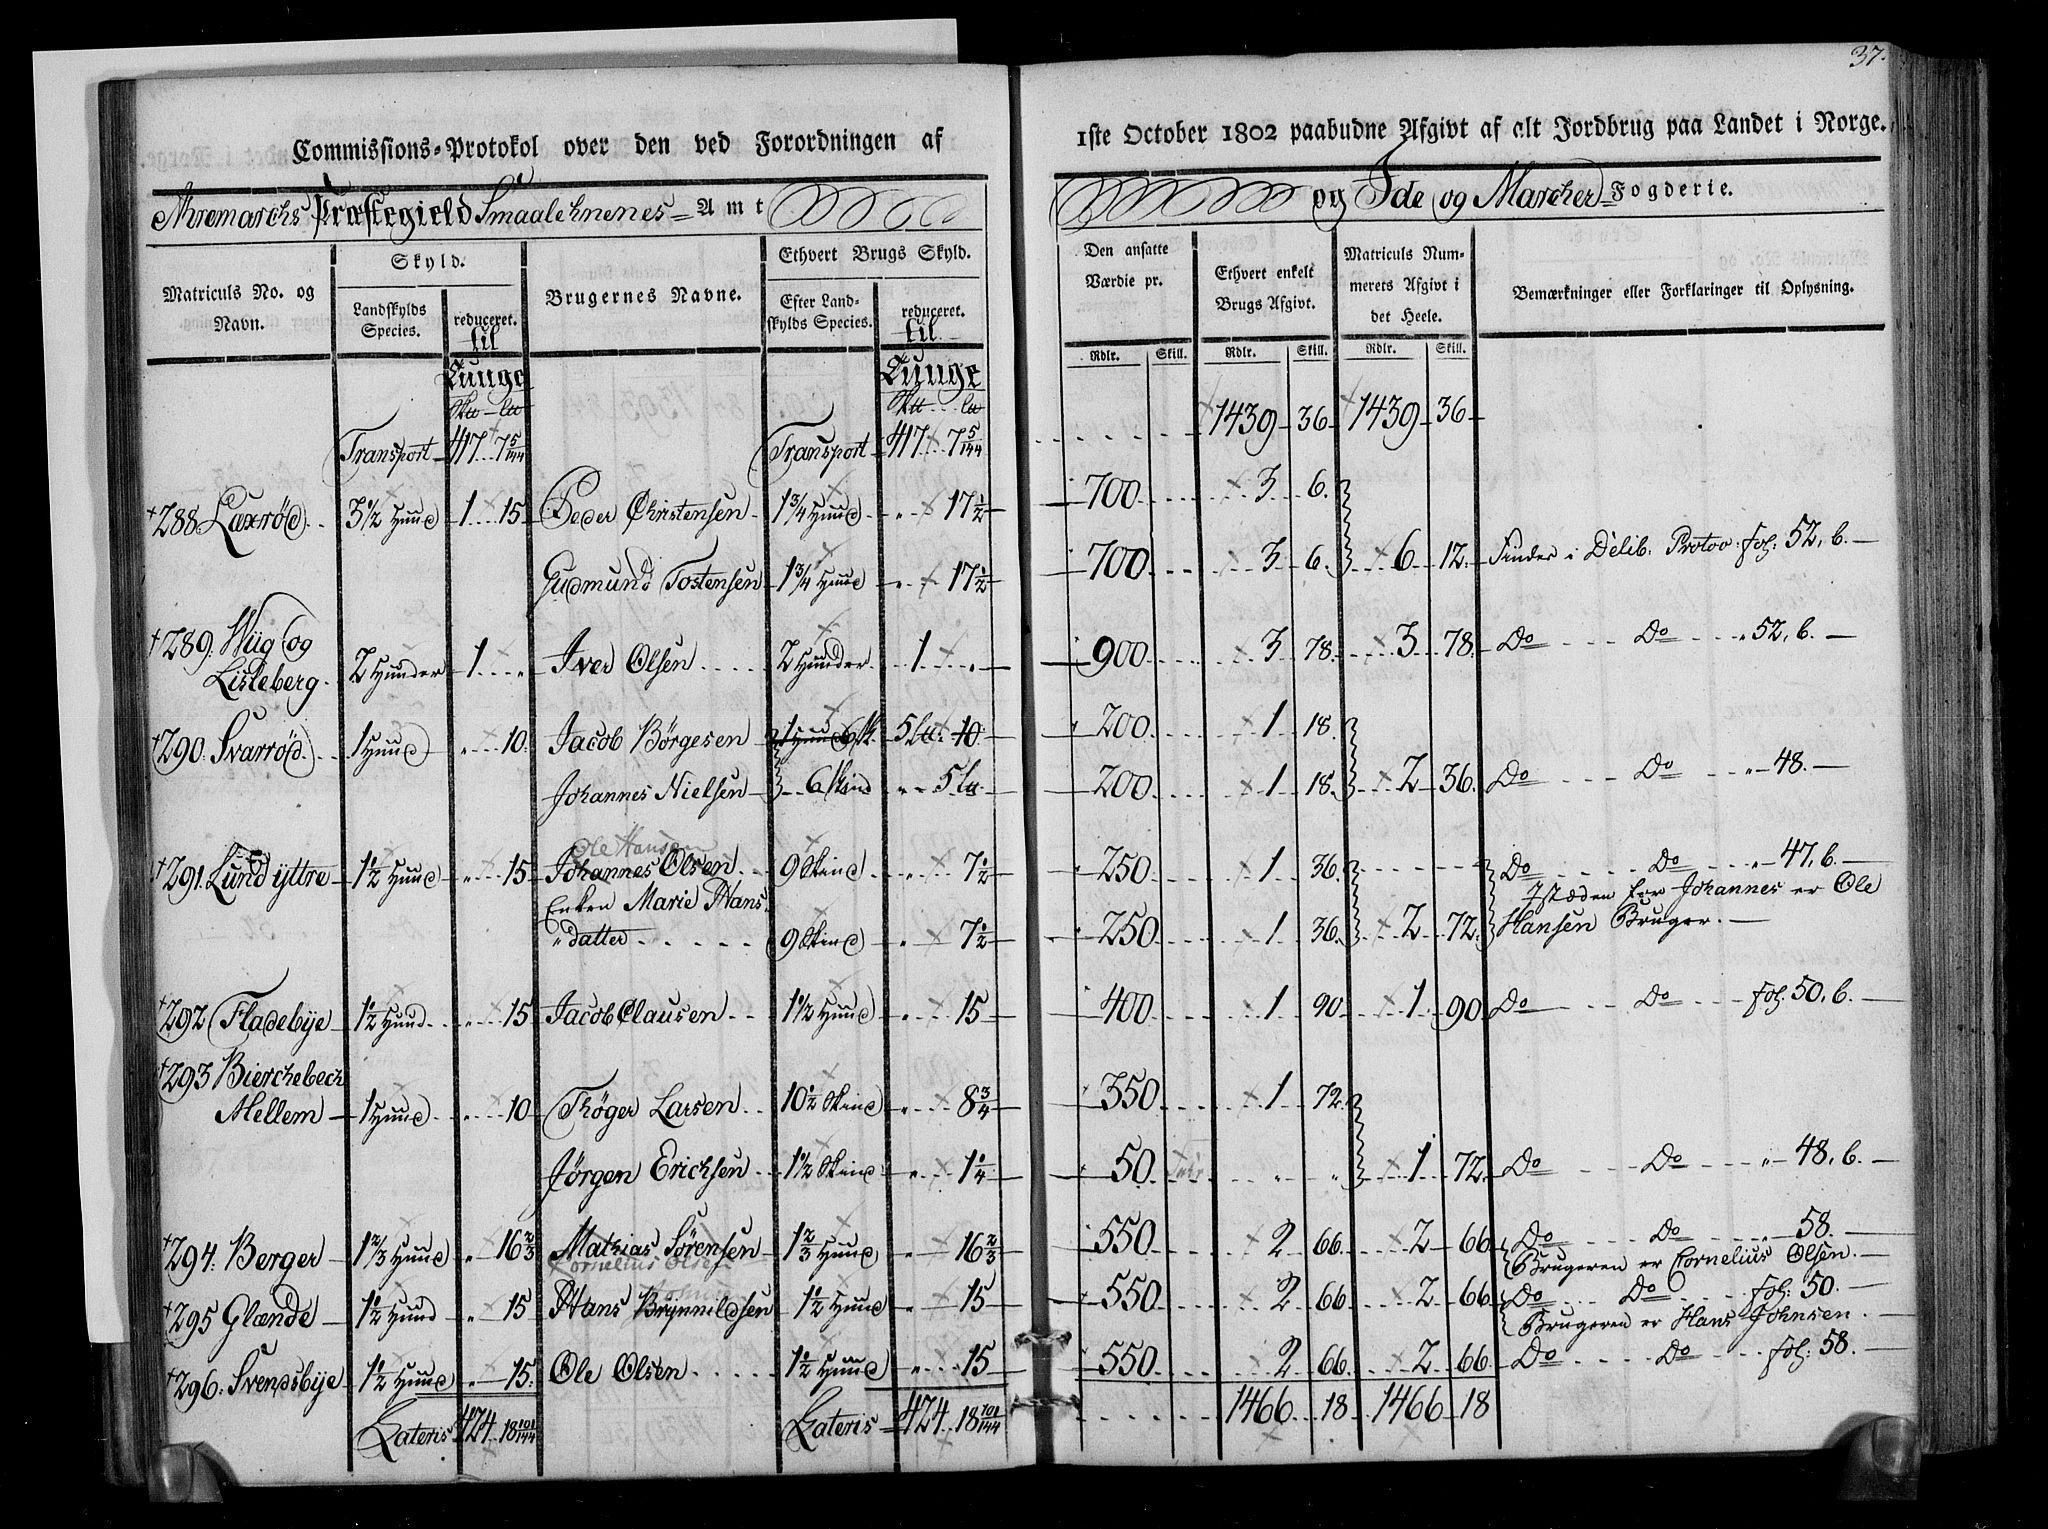 37.
Commissions-Protokol over den ved Forordningen af 1ste October 1802 paabudne Afgivt af alt Jordbrug paa Landet i Norge.
Aremarchs Præstegield Smaalehnenes Amt og Ide og Marcher Fogderie.
Matriculs No. og Navn. | Skyld. | Brugernes Navne. | Ethvert Brugs Skyld. | Den ansatte Værdie pr. | Ethvert enkelt Brugs Afgivt. | Matriculs Nummerets Afgivt i det Heele. | Bemærkninger eller Forklaringer til Oplysning.
Landskylds Species. | reduceret. til Tunge | Efter Landskylds Species. | reduceret. til Tunge
Rdlr. Skill. | Rdlr. Skill. | Rdlr. Skill.
Transport 417 7 5/144 | Transport 417 7 5/144 | 1439 36 | 1439 36
288 Laxrød 3 1/2 Huud 1 15 Peder Christensen 1 3/4 Huud " 17 1/2 700 3 6
Gudmund Tostensen 1 3/4 Huud " 17 1/2 700 3 6 6 12 Findes i Delib. Protoc. fol: 52, b.
289. Wiig og
Lisleberg 2 Huuder 1 " Iver Olsen 2 Huuder 1 " 900 3 78 3 78 Do Do " 52, b.
290. Svarrød 1 Huud " 10 Jacob Børgesen 1 Huud 6 sk. 5 lu 10 200 1 18
Johannes Nielsen 6 Skind " 5 lu 200 1 18 2 36 Do Do " 48.
Ole Hansen
291. Lund yttre 1 1/2 Huud " 15 Johannes Olsen 9 Skind 7 1/2 250 1 36 Do Do " 47, b.
Enken Marie Hans-
datter 9 Skind " 7 1/2 250 1 36 2 72 Istæden for Johannes er Ole
Hansen Bruger.
292 Fladebye 1 1/2 Huud " 15 Jacob Clausen 1 1/2 Huud " 15 400 1 90 1 90 Do Do fol. 50, b.
293 Bierchebech
Mellem 1 Huud " 10 Thøger Larsen 10 1/2 Skind " 8 3/4 350 1 72
Jørgen Erichsen 1 1/2 Skind " 1 1/4 50 " " 1 72 Do Do " 48, b.
294. Berger 1 2/3 Huud " 16 2/3 Mathias Sørensen 1 2/3 Huud " 16 2/3 550 2 66 2 66 Do Do " 58.
Cornelius Olsen
Brugeren er Cornelius Olsen.
295 Glænde 1 1/2 Huud " 15 Hans Brynnildsen 1 1/2 Huud " 15 550 2 66 2 66 Do Do fol: 50.
Brugeren er Hans Johnsen.
296. Svendsbye 1 1/2 Huud " 15 Ole Olsen 1 1/2 Huud " 15 550 2 66 2 66 Do Do fol: 58.
Lateris 424 18 101/144 | Lateris 424 18 101/144 | 1466 18 | 1466 18